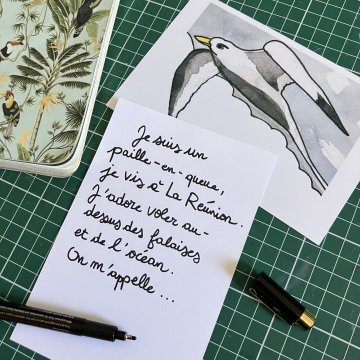 Je suis un
paille-en-queue,
je vis à La Réunion.
J'adore voler au-
dessus des falaises
et de l'océan.
On m'appelle...